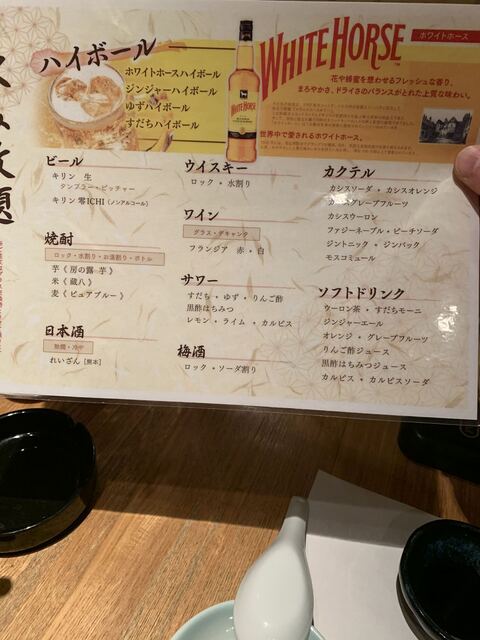 飲み放題
ハイボール
ホワイトホースハイボール
ジンジャーハイボール
ゆずハイボール
すだちハイボール
WHITE HORSE
ホワイトホース
花や蜂蜜を想わせるフレッシュな香り、
まろやかさ、ドライさのバランスがとれた上質な味わい。
世界中で愛されるホワイトホース。
ビール
キリン 生
タンブラー・ピッチャー
キリン 零ICHI (ノンアルコール)
焼酎
ロック・水割り・お湯割り・ボトル
芋《 房の露 芋 》
米《 蔵八 》
麦《 ピュアブルー 》
日本酒
熱燗・冷や
れいざん [熊本]
ウイスキー
ロック・水割り
ワイン
グラス・デキャンタ
フランジア 赤・白
サワー
すだち・ゆず・りんご酢
黒酢はちみつ
レモン・ライム・カルピス
梅酒
ロック・ソーダ割り
カクテル
カシスソーダ・カシスオレンジ
カシスグレープフルーツ
カシスウーロン
ファジーネーブル・ピーチソーダ
ジントニック・ジンバック
モスコミュール
ソフトドリンク
ウーロン茶・すだちモーニ
ジンジャーエール
オレンジ・グレープフルーツ
りんご酢ジュース
黒酢はちみつジュース
カルピス・カルピスソーダ